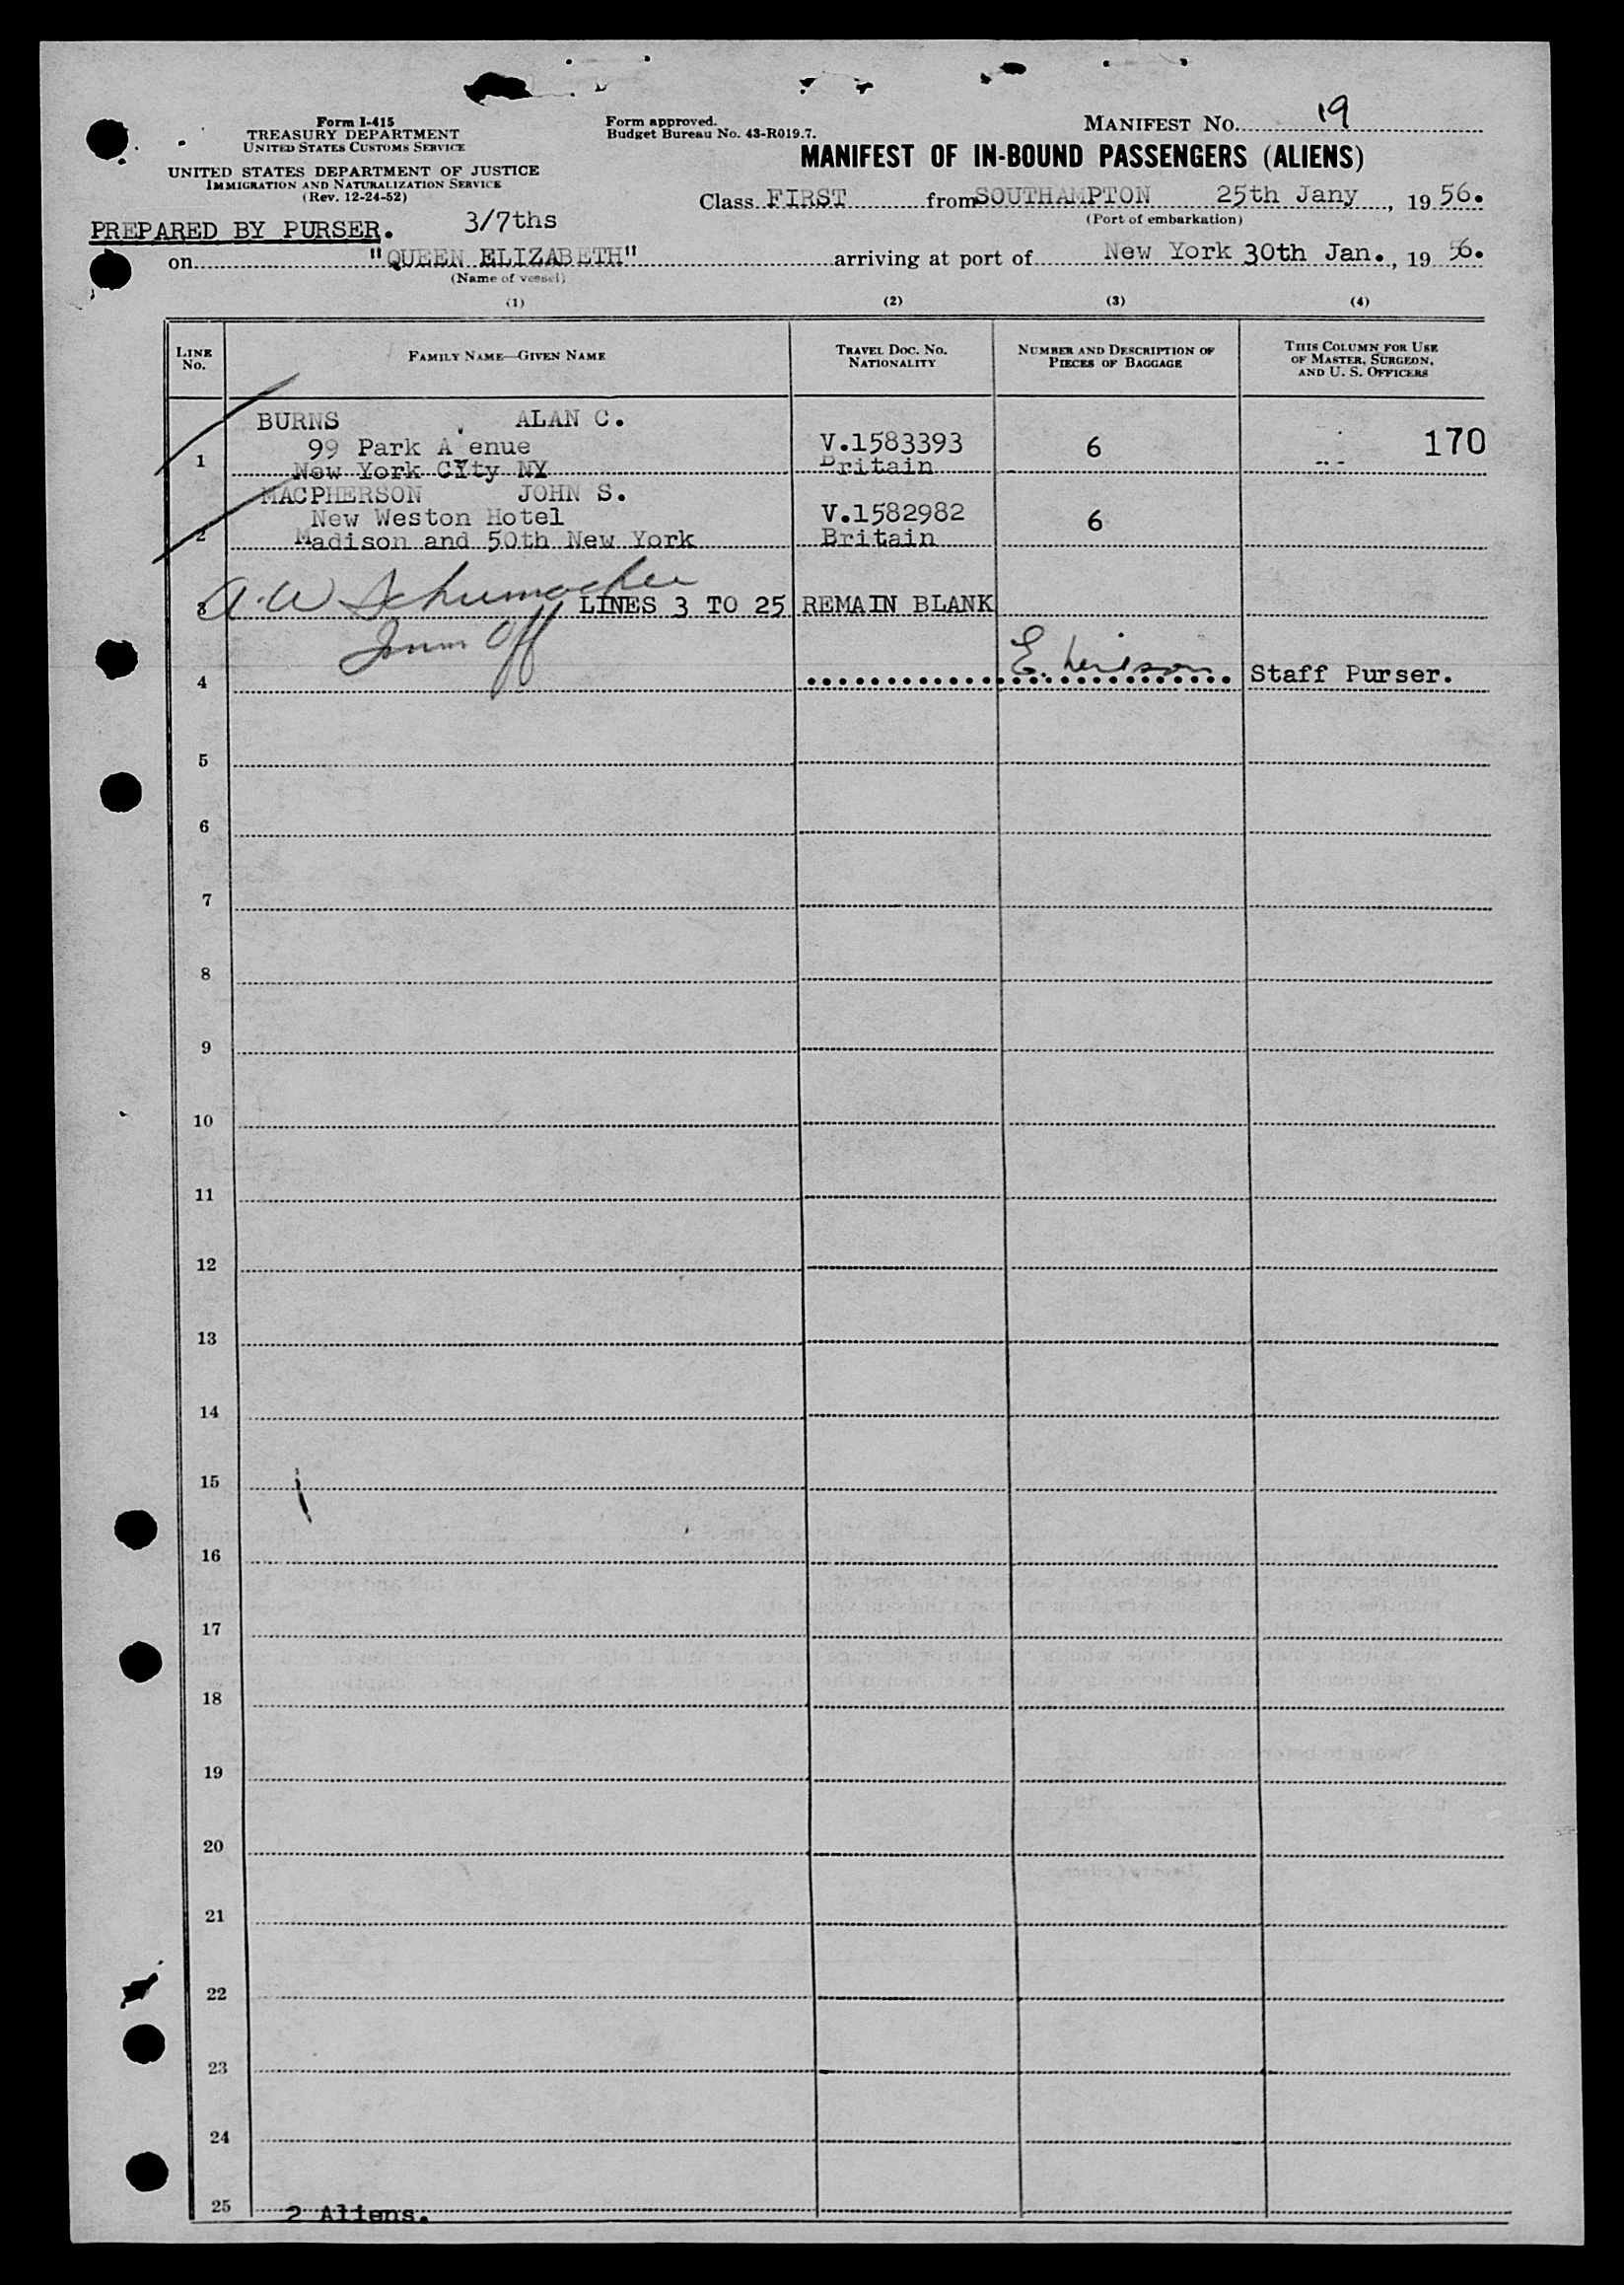 Form I-415
TREASURY DEPARTMENT
UNITED STATES CUSTOMS SERVICE
UNITED STATES DEPARTMENT OF JUSTICE
IMMIGRATION AND NATURALIZATION SERVICE
(Rev. 12-24-52)
Form approved.
Budget Bureau No. 43-R019.7.
MANIFEST No. 19
MANIFEST OF IN-BOUND PASSENGERS (ALIENS)
Class FIRST from SOUTHAMPTON 25th Jany, 19 56.
(Port of embarkation)
PREPARED BY PURSER. 3/7ths
on "QUEEN ELIZABETH" arriving at port of New York 30th Jan., 19 56.
(Name of vessel)
(1) (2) (3) (4)
LINE No. FAMILY NAME—GIVEN NAME TRAVEL DOC. No. NATIONALITY NUMBER AND DESCRIPTION OF PIECES OF BAGGAGE THIS COLUMN FOR USE OF MASTER, SURGEON, AND U. S. OFFICERS
BURNS ALAN C.
99 Park A enue V.1583393 6 170
1 New York CYty NY Britain
MACPHERSON JOHN S.
New Weston Hotel V.1582982 6
2 Madison and 50th New York Britain
A.W Schumacher
3 LINES 3 TO 25 REMAIN BLANK
Imm Off
4 E. Staff Purser.
5
6
7
8
9
10
11
12
13
14
15
16
17
18
19
20
21
22
23
24
25 2 Aliens.